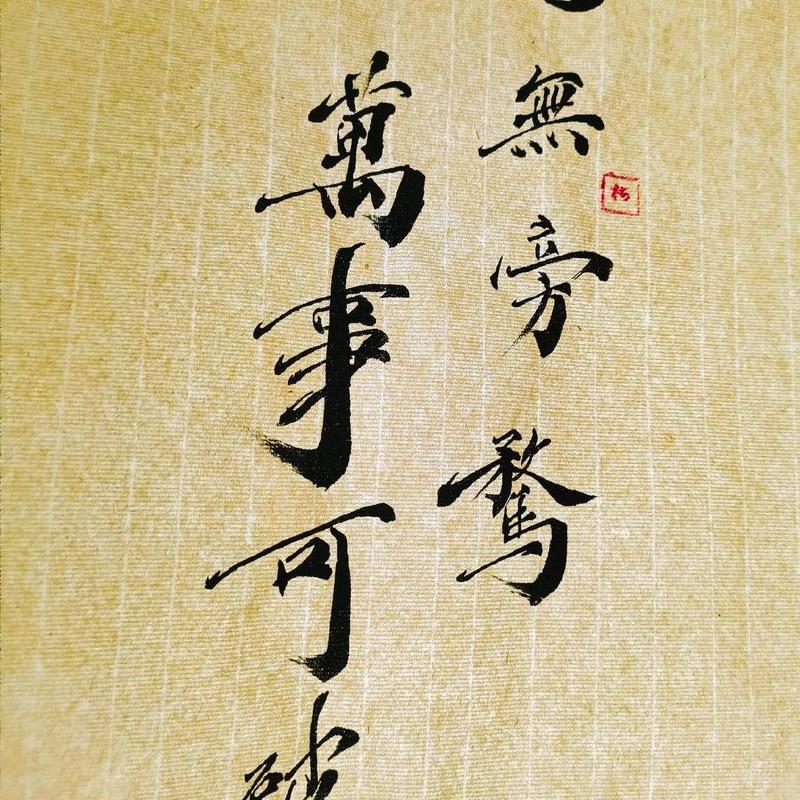 無旁騖
萬事可破